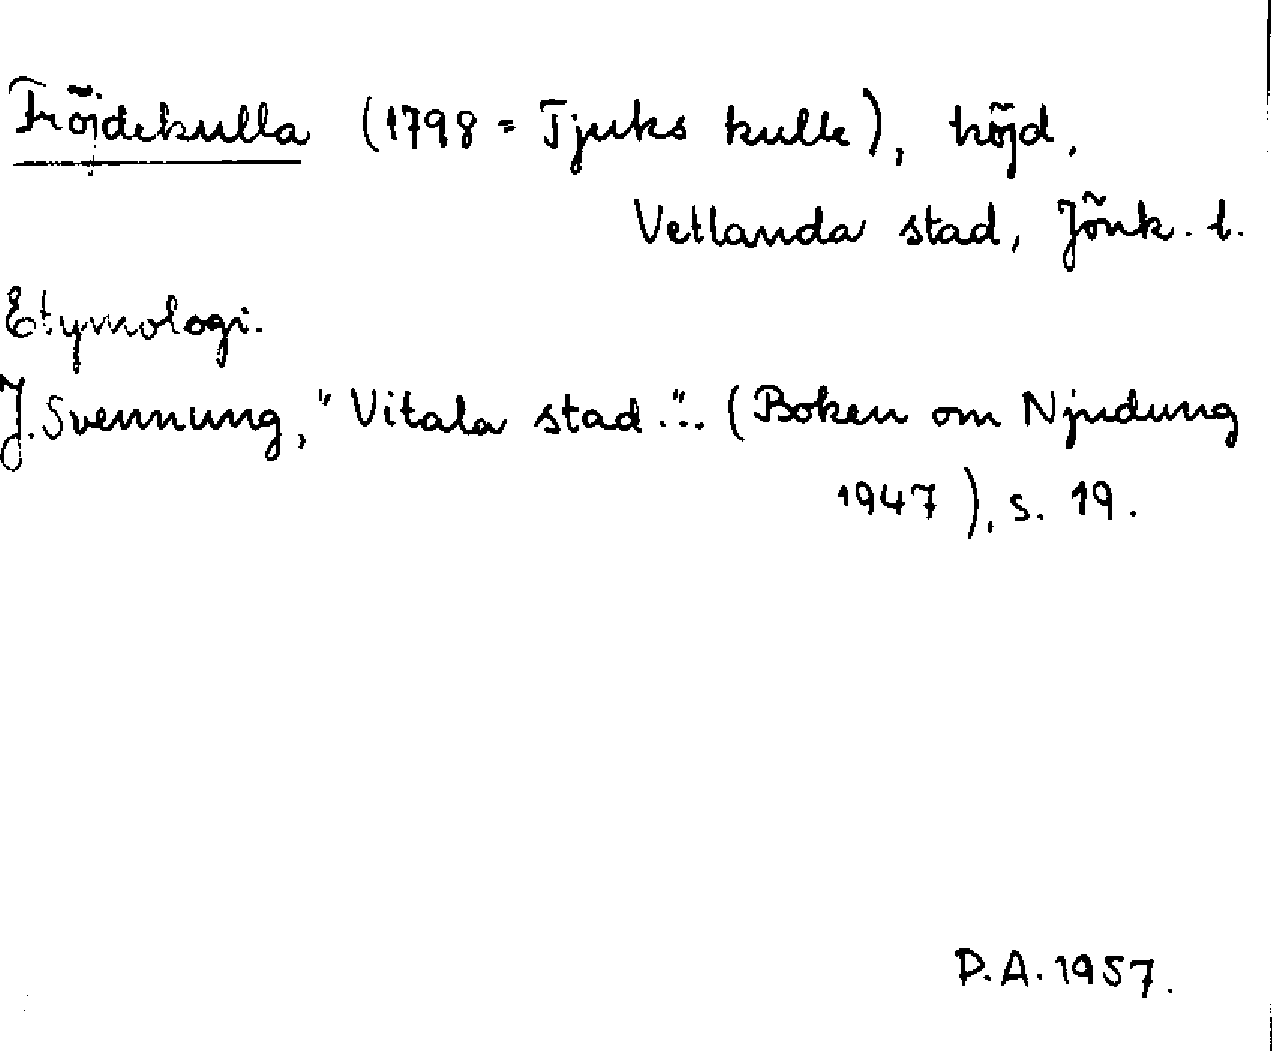 Fröjdekulla (1798 = Tjuks kulle), höjd,
Vetlanda stad, Jönk. l.
Etymologi.
J. Svennung, "Vitala stad"... (Boken om Njudung
1947), s. 19.
D.A. 1957.